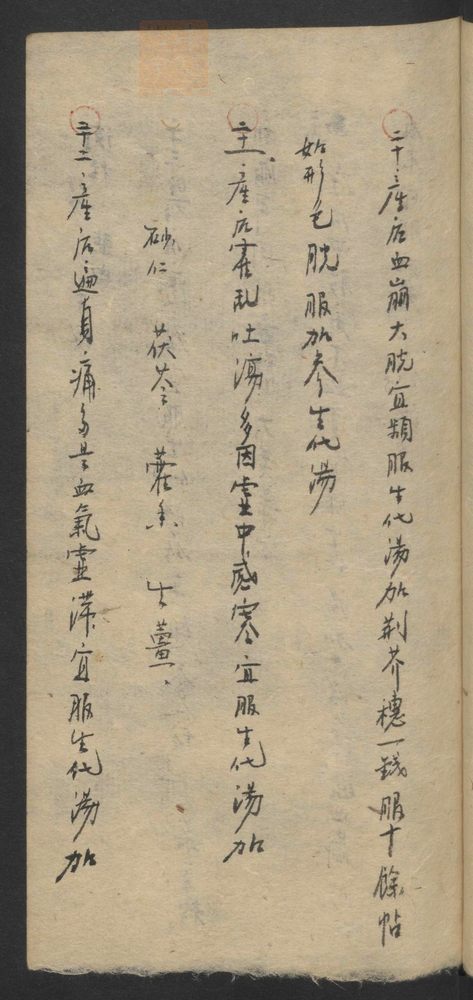 二十產后血崩大脱宜頻服生化湯加荆芥穗一錢服十餘帖
如形色脱服加参生化湯
二十一、產后霍乱吐瀉多因虚中感寒宜服生化湯加
砂仁 茯苓 藿香 生薑、
二十二、產后遍身痛多是血氣虚滞宜服生化湯加